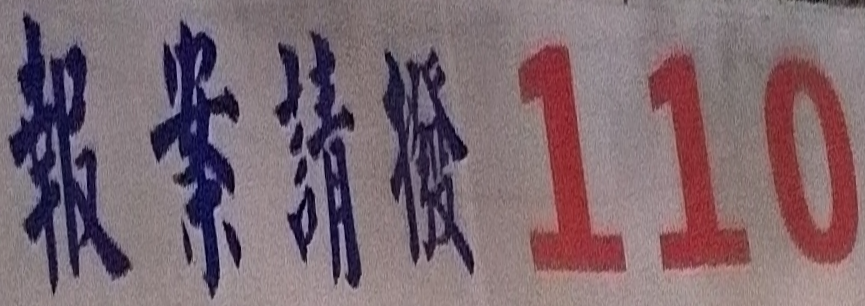 報案請撥110